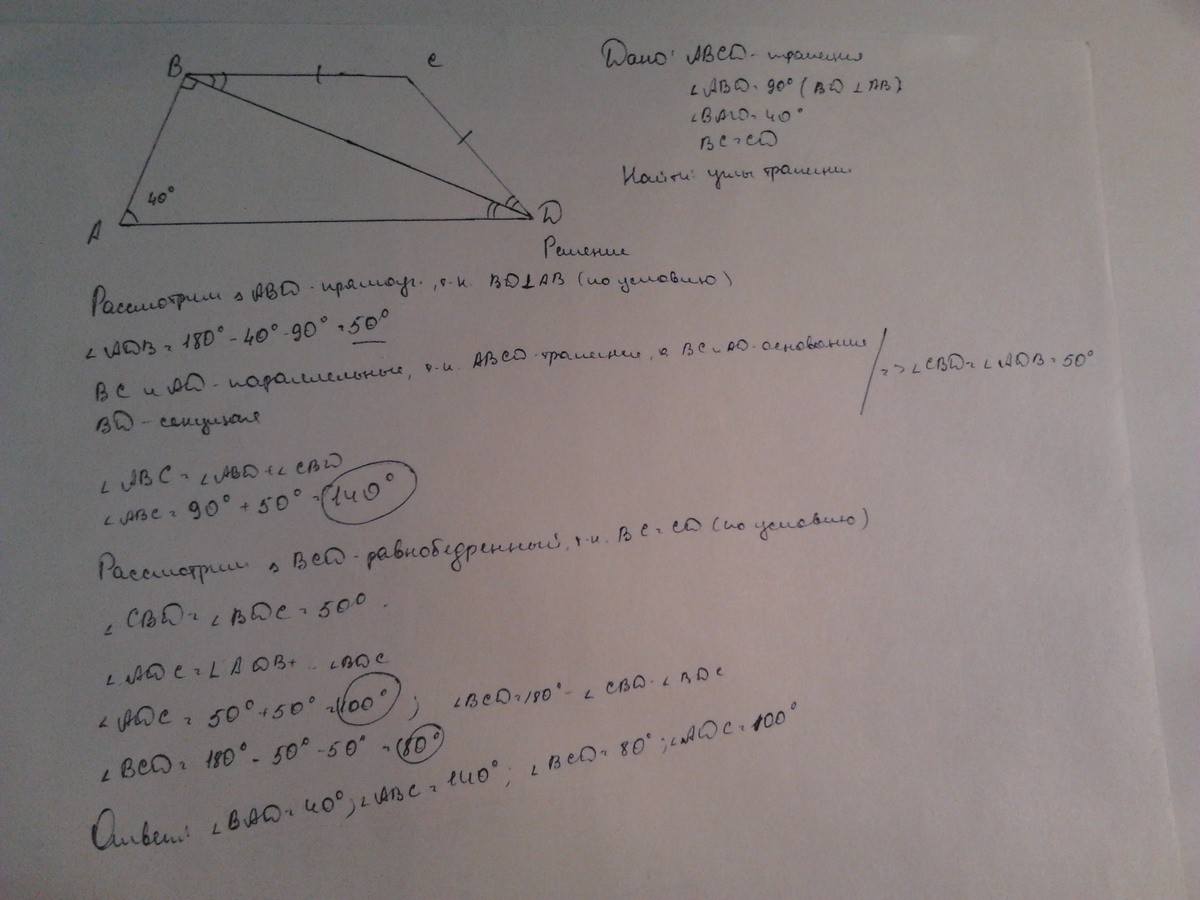 B
C
40°
A
D
Дано: ABCD - трапеция
∠ABD = 90° (BD ⊥ AB)
∠BAD = 40°
BC = CD
Найти: углы трапеции
Решение
Рассмотрим ▵ ABD - прямоуг., т.к. BD⊥AB (по условию)
∠ADB = 180° - 40° - 90° = 50°
BC и AD - параллельные, т.к. ABCD - трапеция, а BC и AD - основания
BD - секущая
=> ∠CBD = ∠ADB = 50°
∠ABC = ∠ABD + ∠CBD
∠ABC = 90° + 50° = 140°
Рассмотрим ▵ BCD - равнобедренный, т.к. BC = CD (по условию)
∠CBD = ∠BDC = 50°.
∠ADC = ∠ADB + ∠BDC
∠ADC = 50° + 50° = 100° ; ∠BCD = 180° - ∠CBD - ∠BDC
∠BCD = 180° - 50° - 50° = 80°
Ответ: ∠BAD = 40°; ∠ABC = 140°; ∠BCD = 80°; ∠ADC = 100°